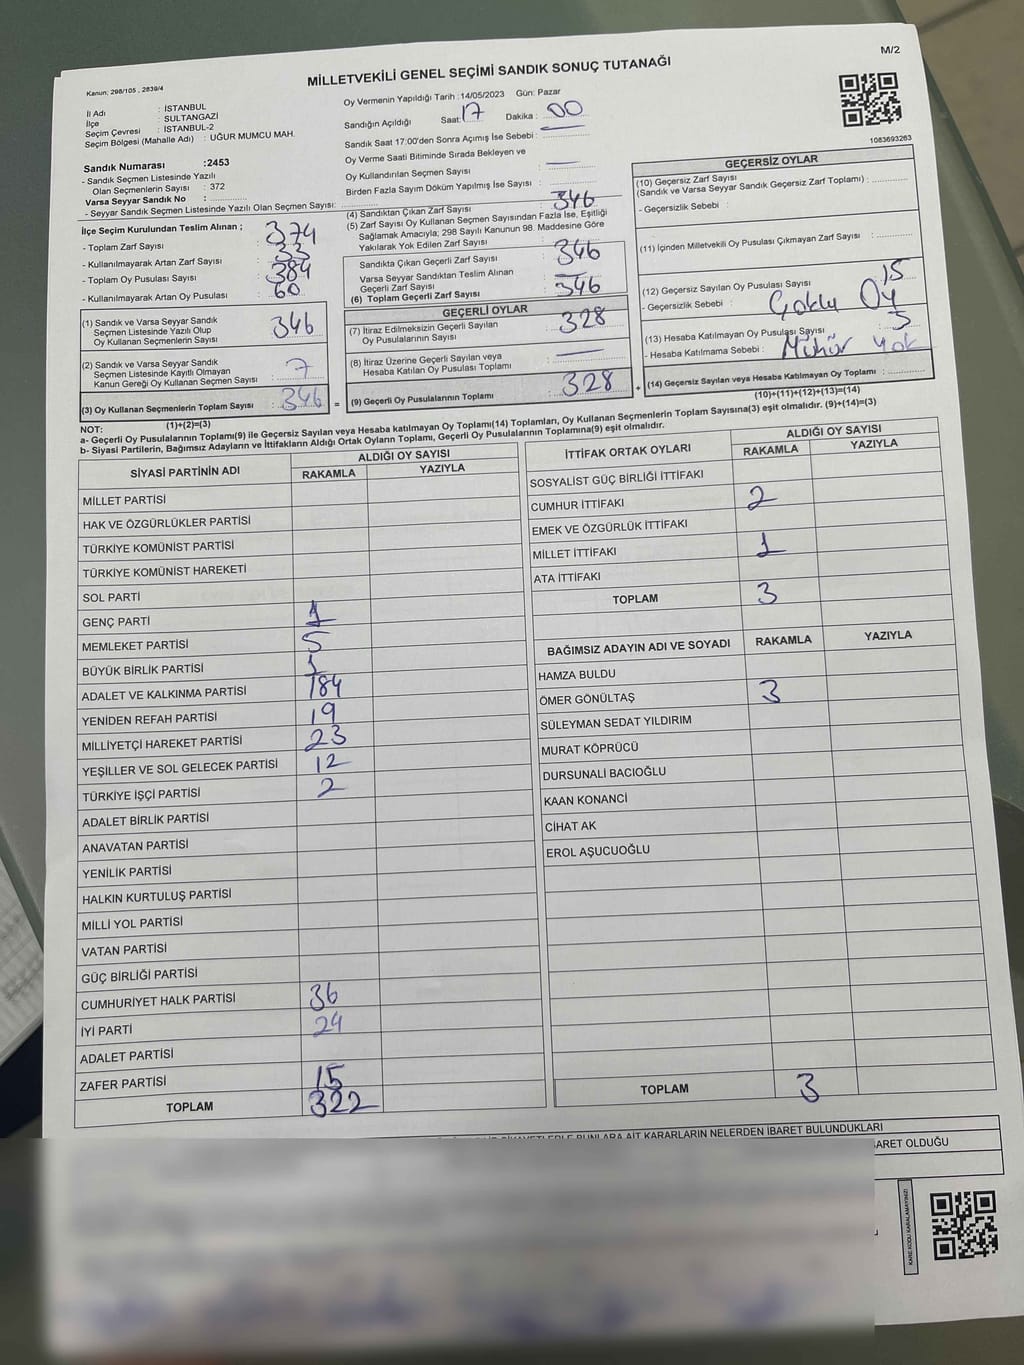 M/2
MİLLETVEKİLİ GENEL SEÇİMİ SANDIK SONUÇ TUTANAĞI
Kanun: 298/105 , 2839/4
İl Adı : İSTANBUL
İlçe : SULTANGAZİ
Seçim Çevresi : İSTANBUL-2
Seçim Bölgesi (Mahalle Adı) : UĞUR MUMCU MAH.
Sandık Numarası :2453
- Sandık Seçmen Listesinde Yazılı
Olan Seçmenlerin Sayısı : 372
Varsa Seyyar Sandık No :
- Seyyar Seçmen Listesinde Yazılı Olan Seçmen Sayısı:
İlçe Seçim Kurulundan Teslim Alınan ;
- Toplam Zarf Sayısı : 374
- Kullanılmayarak Artan Zarf Sayısı : 33
- Toplam Oy Pusulası Sayısı : 384
- Kullanılmayarak Artan Oy Pusulası : 60
(1) Sandık ve Varsa Seyyar Sandık
Seçmen Listesinde Yazılı Olup
Oy Kullanan Seçmenlerin Sayısı : 346
(2) Sandık ve Varsa Seyyar Sandık
Seçmen Listesinde Kayıtlı Olmayan
Kanun Gereği Oy Kullanan Seçmen Sayısı : 7
(3) Oy Kullanan Seçmenlerin Toplam Sayısı : 346 =
(1)+(2)=(3)
Oy Vermenin Yapıldığı Tarih :14/05/2023 Gün: Pazar
Sandığın Açıldığı Saat: 17 Dakika : 00
Sandık Saat 17:00'den Sonra Açımış İse Sebebi :
Oy Verme Saati Bitiminde Sırada Bekleyen ve
Oy Kullandırılan Seçmen Sayısı :
Birden Fazla Sayım Döküm Yapılmış İse Sayısı :
(4) Sandıktan Çıkan Zarf Sayısı : 346
(5) Zarf Sayısı Oy Kullanan Seçmen Sayısından Fazla İse, Eşitliği
Sağlamak Amacıyla; 298 Sayılı Kanunun 98. Maddesine Göre
Yakılarak Yok Edilen Zarf Sayısı :
Sandıkta Çıkan Geçerli Zarf Sayısı : 346
Varsa Seyyar Sandıktan Teslim Alınan
Geçerli Zarf Sayısı :
(6) Toplam Geçerli Zarf Sayısı : 346
GEÇERLİ OYLAR
(7) İtiraz Edilmeksizin Geçerli Sayılan
Oy Pusulalarının Sayısı : 328
(8) İtiraz Üzerine Geçerli Sayılan veya
Hesaba Katılan Oy Pusulası Toplamı :
(9) Geçerli Oy Pusulalarının Toplamı : 328 +
1083693263
GEÇERSİZ OYLAR
(10) Geçersiz Zarf Sayısı
(Sandık ve Varsa Seyyar Sandık Geçersiz Zarf Toplamı) :
- Geçersizlik Sebebi :
(11) İçinden Milletvekili Oy Pusulası Çıkmayan Zarf Sayısı :
(12) Geçersiz Sayılan Oy Pusulası Sayısı : 15
- Geçersizlik Sebebi : Çoklu Oy
(13) Hesaba Katılmayan Oy Pusulası Sayısı : 3
- Hesaba Katılmama Sebebi : Mühür yok
(14) Geçersiz Sayılan veya Hesaba Katılmayan Oy Toplamı :
(10)+(11)+(12)+(13)=(14)
NOT:
a- Geçerli Oy Pusulalarının Toplamı(9) ile Geçersiz Sayılan veya Hesaba katılmayan Oy Toplamı(14) Toplamları, Oy Kullanan Seçmenlerin Toplam Sayısına(3) eşit olmalıdır. (9)+(14)=(3)
b- Siyasi Partilerin, Bağımsız Adayların ve İttifakların Aldığı Ortak Oyların Toplamı, Geçerli Oy Pusulalarının Toplamına(9) eşit olmalıdır.
SİYASİ PARTİNİN ADI ALDIĞI OY SAYISI
RAKAMLA YAZIYLA
MİLLET PARTİSİ
HAK VE ÖZGÜRLÜKLER PARTİSİ
TÜRKİYE KOMÜNİST PARTİSİ
TÜRKİYE KOMÜNİST HAREKETİ
SOL PARTİ
GENÇ PARTİ 1
MEMLEKET PARTİSİ 5
BÜYÜK BİRLİK PARTİSİ 1
ADALET VE KALKINMA PARTİSİ 184
YENİDEN REFAH PARTİSİ 19
MİLLİYETÇİ HAREKET PARTİSİ 23
YEŞİLLER VE SOL GELECEK PARTİSİ 12
TÜRKİYE İŞÇİ PARTİSİ 2
ADALET BİRLİK PARTİSİ
ANAVATAN PARTİSİ
YENİLİK PARTİSİ
HALKIN KURTULUŞ PARTİSİ
MİLLİ YOL PARTİSİ
VATAN PARTİSİ
GÜÇ BİRLİĞİ PARTİSİ
CUMHURİYET HALK PARTİSİ 36
İYİ PARTİ 24
ADALET PARTİSİ
ZAFER PARTİSİ 15
TOPLAM 322
İTTİFAK ORTAK OYLARI ALDIĞI OY SAYISI
RAKAMLA YAZIYLA
SOSYALİST GÜÇ BİRLİĞİ İTTİFAKI
CUMHUR İTTİFAKI 2
EMEK VE ÖZGÜRLÜK İTTİFAKI
MİLLET İTTİFAKI 1
ATA İTTİFAKI
TOPLAM 3
BAĞIMSIZ ADAYIN ADI VE SOYADI RAKAMLA YAZIYLA
HAMZA BULDU
ÖMER GÖNÜLTAŞ 3
SÜLEYMAN SEDAT YILDIRIM
MURAT KÖPRÜCÜ
DURSUNALİ BACIOĞLU
KAAN KONANCİ
CİHAT AK
EROL AŞUCUOĞLU
TOPLAM 3
BUNLARA AİT KARARLARIN NELERDEN İBARET BULUNDUKLARI
OLDUĞU
KARE KODU KARALAMAYINIZ!